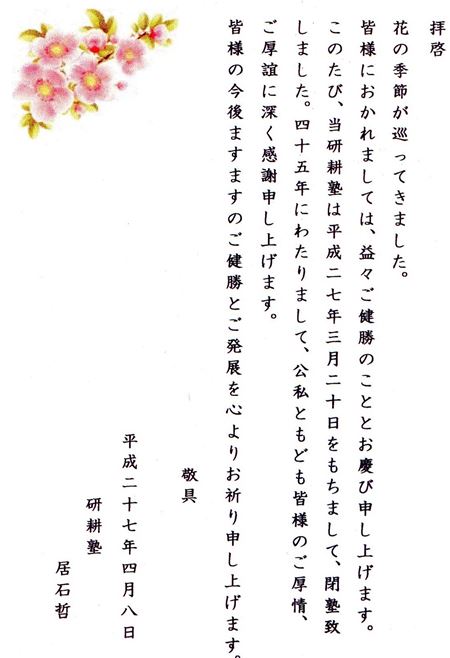 拝啓
花の季節が巡ってきました。
皆様におかれましては、益々ご健勝のこととお慶び申し上げます。
このたび、当研耕塾は平成二七年三月二十日をもちまして、閉塾致
しました。四十五年にわたりまして、公私ともども皆様のご厚情、
ご厚誼に深く感謝申し上げます。
皆様の今後ますますのご健勝とご発展を心よりお祈り申し上げます。
敬具
平成二十七年四月八日
研耕塾
居石哲